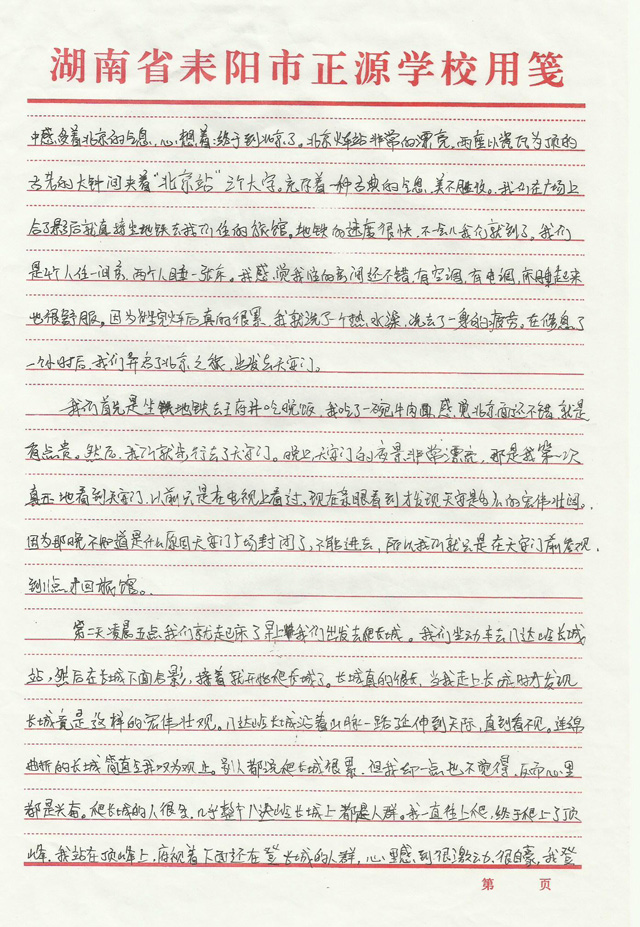 湖南省耒阳市正源学校用笺
中感受着北京的气息,心想着:终于到北京了。北京火车站非常的漂亮。两座以瓷瓦为顶的
古老的大钟间夹着“北京站”三个大字。充斥着一种古典的气息,美不胜收。我们在广场上
合了影后就直接坐地铁去我们住的旅馆。地铁的速度很快,不会儿我们就到了。我们
是4个人住一间房,两个人睡一张床。我感觉我住的房间还不错,有空调,有电调,床睡起来
也很舒服。因为坐完火车后真的很累,我就洗了个热水澡,洗去了一身的疲劳。在休息了
一个小时后,我们开启了北京之旅,出发去天安门。
我们首先是坐地铁去王府井吃晚饭,我吃了一碗牛肉面,感觉北京面还不错,就是
有点贵。然后,我们就步行去了天安门。晚上,天安门的夜景非常漂亮,那是我第一次
真正地看到天安门,以前只是在电视上看过,现在亲眼看到才发现天安门是多么的宏伟壮阔。
因为那晚不知道是什么原因天安门广场封闭了,不能进去,所以我们就只是在天安门前参观,
到11点才回旅馆。
第二天凌晨五点,我们就起床了早上我们出发去爬长城。我们坐动车去八达岭长城
站,然后在长城下面合影,接着就开始爬长城了。长城真的很长,当我走上长城时才发现
长城竟是这样的宏伟壮观。八达岭长城沿着山脉一路延伸到天际,直到看不见。连绵
曲折的长城简直令我叹为观止。别人都说爬长城很累,但我却一点也不觉得,反而心里
都是兴奋。爬长城的人很多,几乎整个八达岭长城上都是人群。我一直往上爬,终于爬上了顶
峰,我站在顶峰上,俯视着下面还在登长城的人群,心里感到很激动,很自豪,我登
第 页